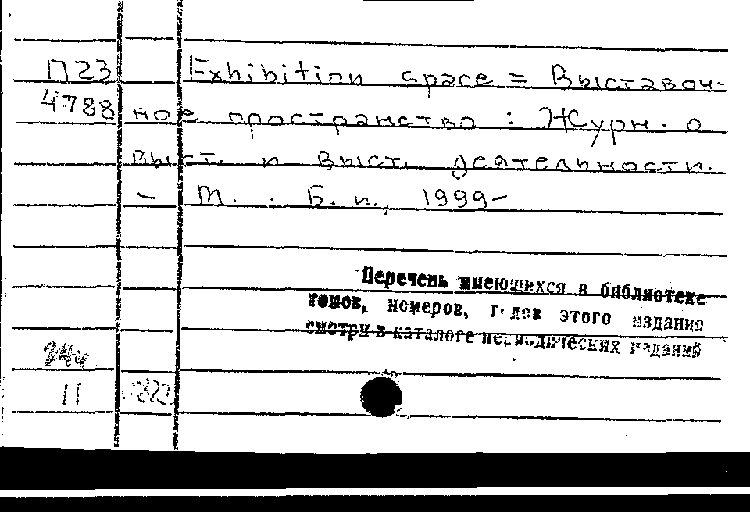 П23 Exhibition space = Выставоч-
4788 ное пространство : Журн. о
выст. и выст. деятельности.
- М. : Б. и., 1999-
Перечень имеющихся в библиотеке
томов, номеров, годов этого издания
смотри в каталоге периодических изданий
11